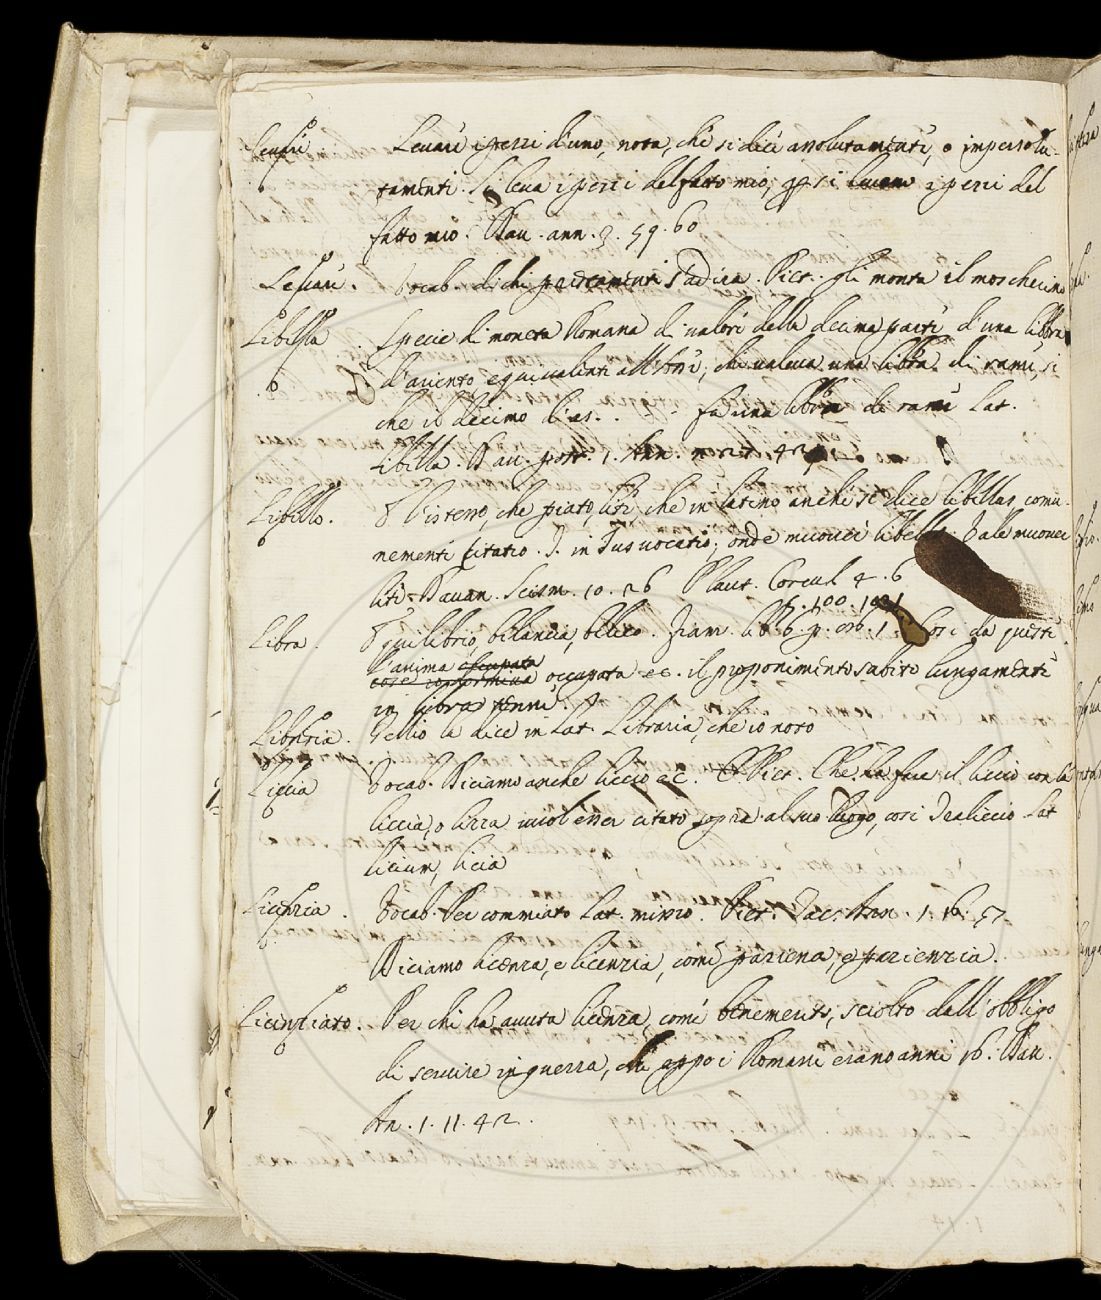 Levare Levare i pezzi d'uno, nota, che si dice assolutamente, o impersolu-
tamente. Si leva i pezzi del fatto mio, e si i pezzi del
fatto mio. Dav. ann. 3. 59. 60
Lessare. Vocab. di chi prestamente s'adira. Pict. gli monta il moscherino
Libella Specie di moneta Romana di valore della decima parte d'una libbra
d'argento, equivalente all'Asse, che valeva una libbra di rame, si
che il decimo d'as. fa una libbra di rame Lat.
Libella. Dav. post. 1. Ann. 42
Libello. che piato, lite che in latino anche si dice libellus comu-
nemente Citatio. I. in Jus vocatio; onde muovere libello. Vale muover
lite. Davan. Scism. 10. 26 Plaut. Corcul 4. 6
Libra. Equilibrio, bilancia, bilico. lib 6. p. 1. Cosi da queste
cose
l'anima occupata
occupata ec. il proponimento subito lungamente
in libra tenne
Libreria. Gellio la dice in Lat. Libraria, che io noto
Liccia Vocab. Diciamo anche liccio ec. Pict. Che fa fare il liccio con la
liccia, o lizza vuol esser citato sopra al suo luogo, cosi Da liccio Lat
licium, licia
Licenzia. Vocab. Per commiato Lat. missio. Pict. Tac. Ann. 1. 16. 57
Diciamo licenza, e licenzia, come pazienza, e pazienzia.
Licenziato. Per chi ha avuta licenza, come benemerito, sciolto dall'obbligo
di servire in guerra, che appo i Romani erano anni 16. Dav.
An. 1. 11. 42.